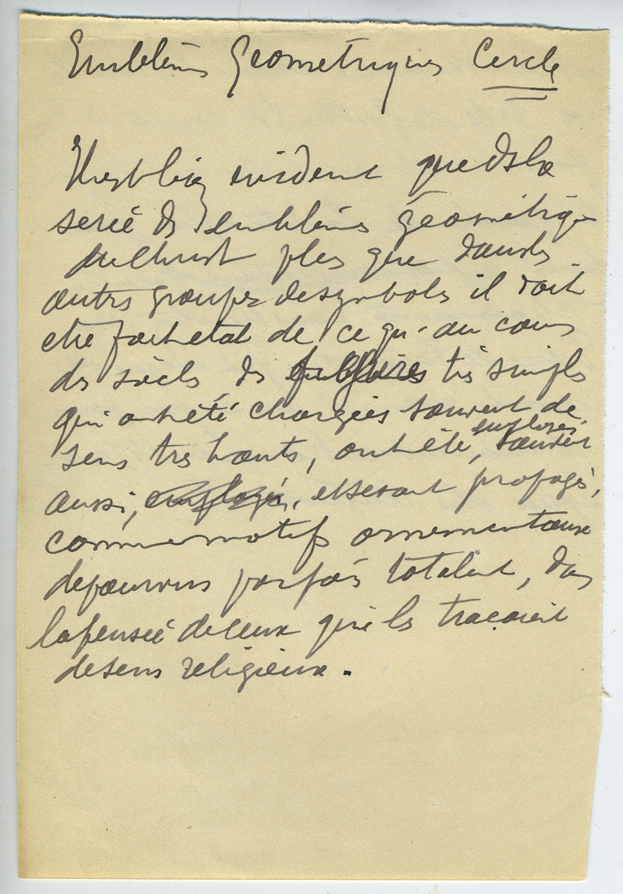 Emblèmes Géometriques Cercle
Il est bien evident que dsla
serie ds emblèms géométriq
du Christ plus que dans ls
autrs groupes de symbols il doit
etre fait etat de ce qu'au cours
ds siècls ds figures très simpls
qui ont été chargées souvent de
sens très hauts, ont été, employées, souvent
aussi, employés, et se sont propagés,
comme motifs ornementaux
dépourvus parfois totalemt, dans
la pensée de ceux qui ls traçaient
de sens religieux.